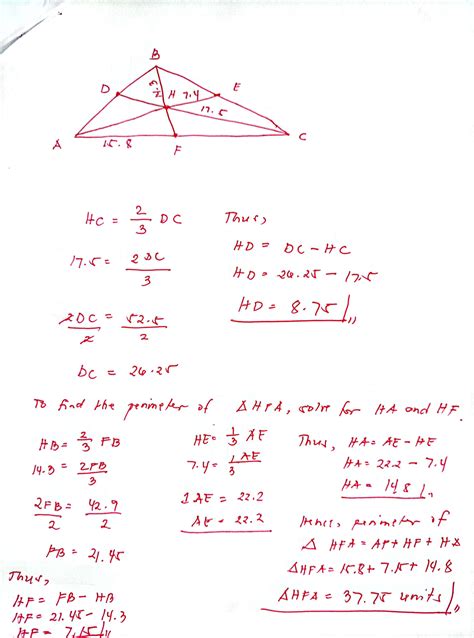 B
D H 7.4 E
17.5
A 15.8 F C
HC = 2/3 DC
17.5 = 2DC/3
2DC/2 = 52.5/2
DC = 26.25
Thus,
HD = DC - HC
HD = 26.25 - 17.5
HD = 8.75 //
To find the perimeter of △HFA, solve for HA and HF
HB = 2/3 FB
14.3 = 2FB/3
2FB/2 = 42.9/2
FB = 21.45
Thus,
HF = FB - HB
HF = 21.45 - 14.3
HF = 7.15 //
HE = 1/3 AE
7.4 = 1AE/3
1AE = 22.2
AE = 22.2
Thus, HA = AE - HE
HA = 22.2 - 7.4
HA = 14.8 //
Hence, perimeter of
△ HFA = AF + HF + HA
△HFA = 15.8 + 7.15 + 14.8
△HFA = 37.75 units //